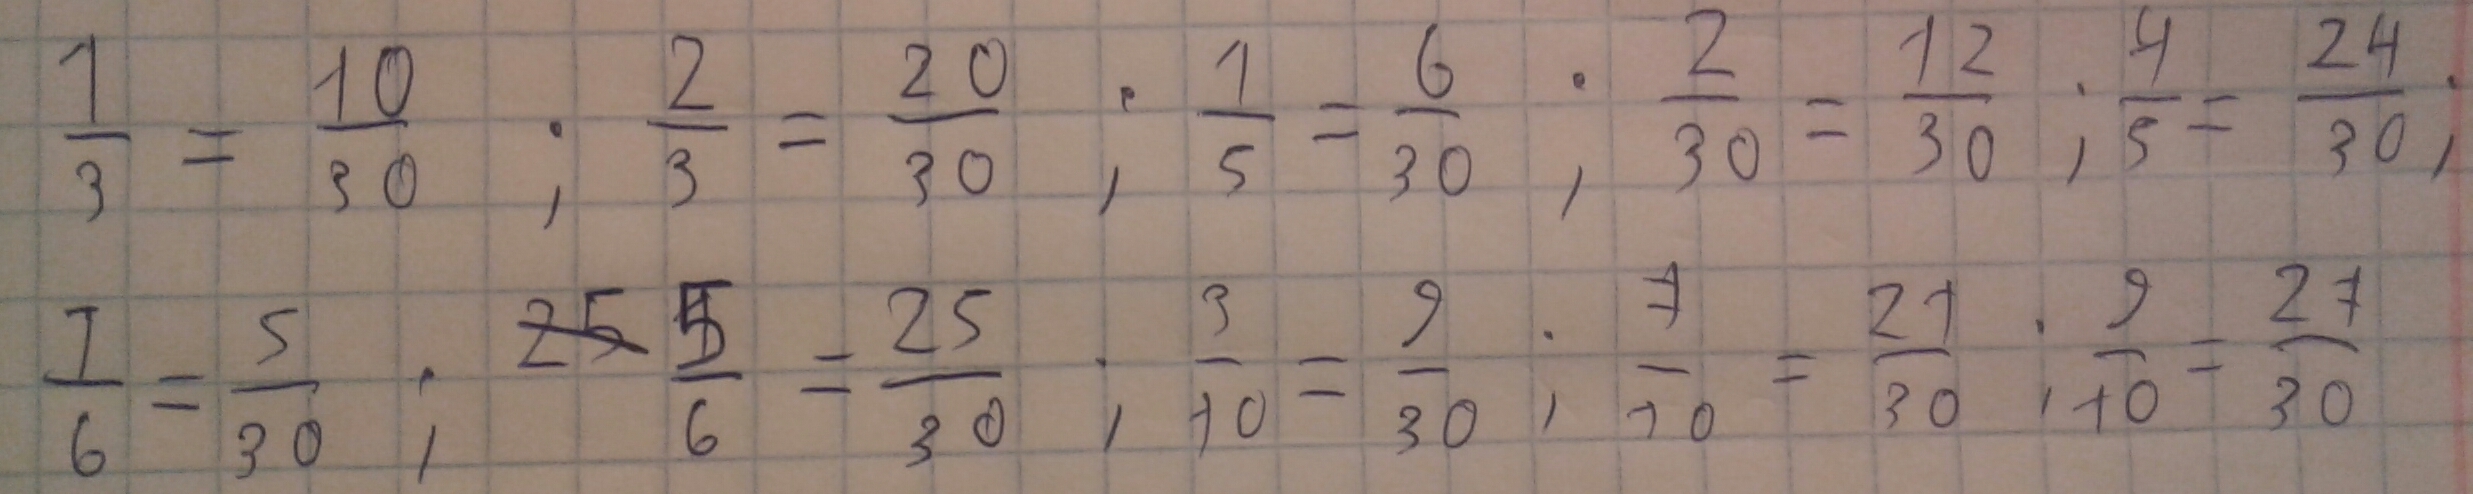 1/3 = 10/30 ; 2/3 = 20/30 ; 1/5 = 6/30 ; 2/30 = 12/30 ; 4/5 = 24/30 ;
1/6 = 5/30 ; 5/6 = 25/30 ; 3/10 = 9/30 ; 7/10 = 21/30 ; 9/10 = 27/30